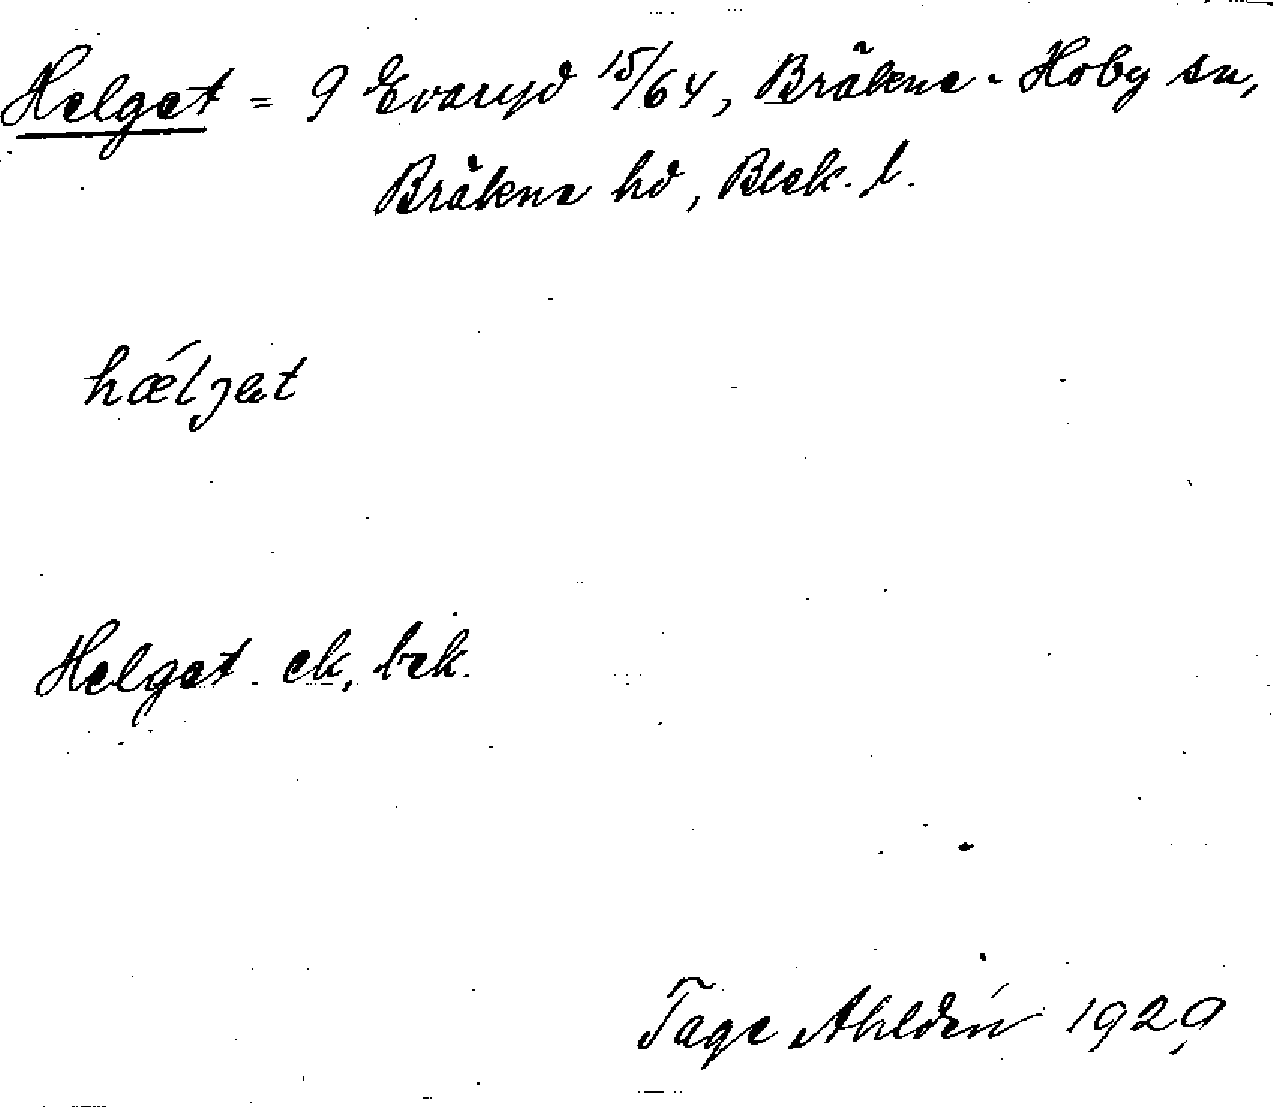 Helget = 9 Evaryd 15/64, Bräkne-Hoby sn,
Bräkne hd, Blek. l.
hǽljət
Helget ek, bek.
Tage Ahldén 1929